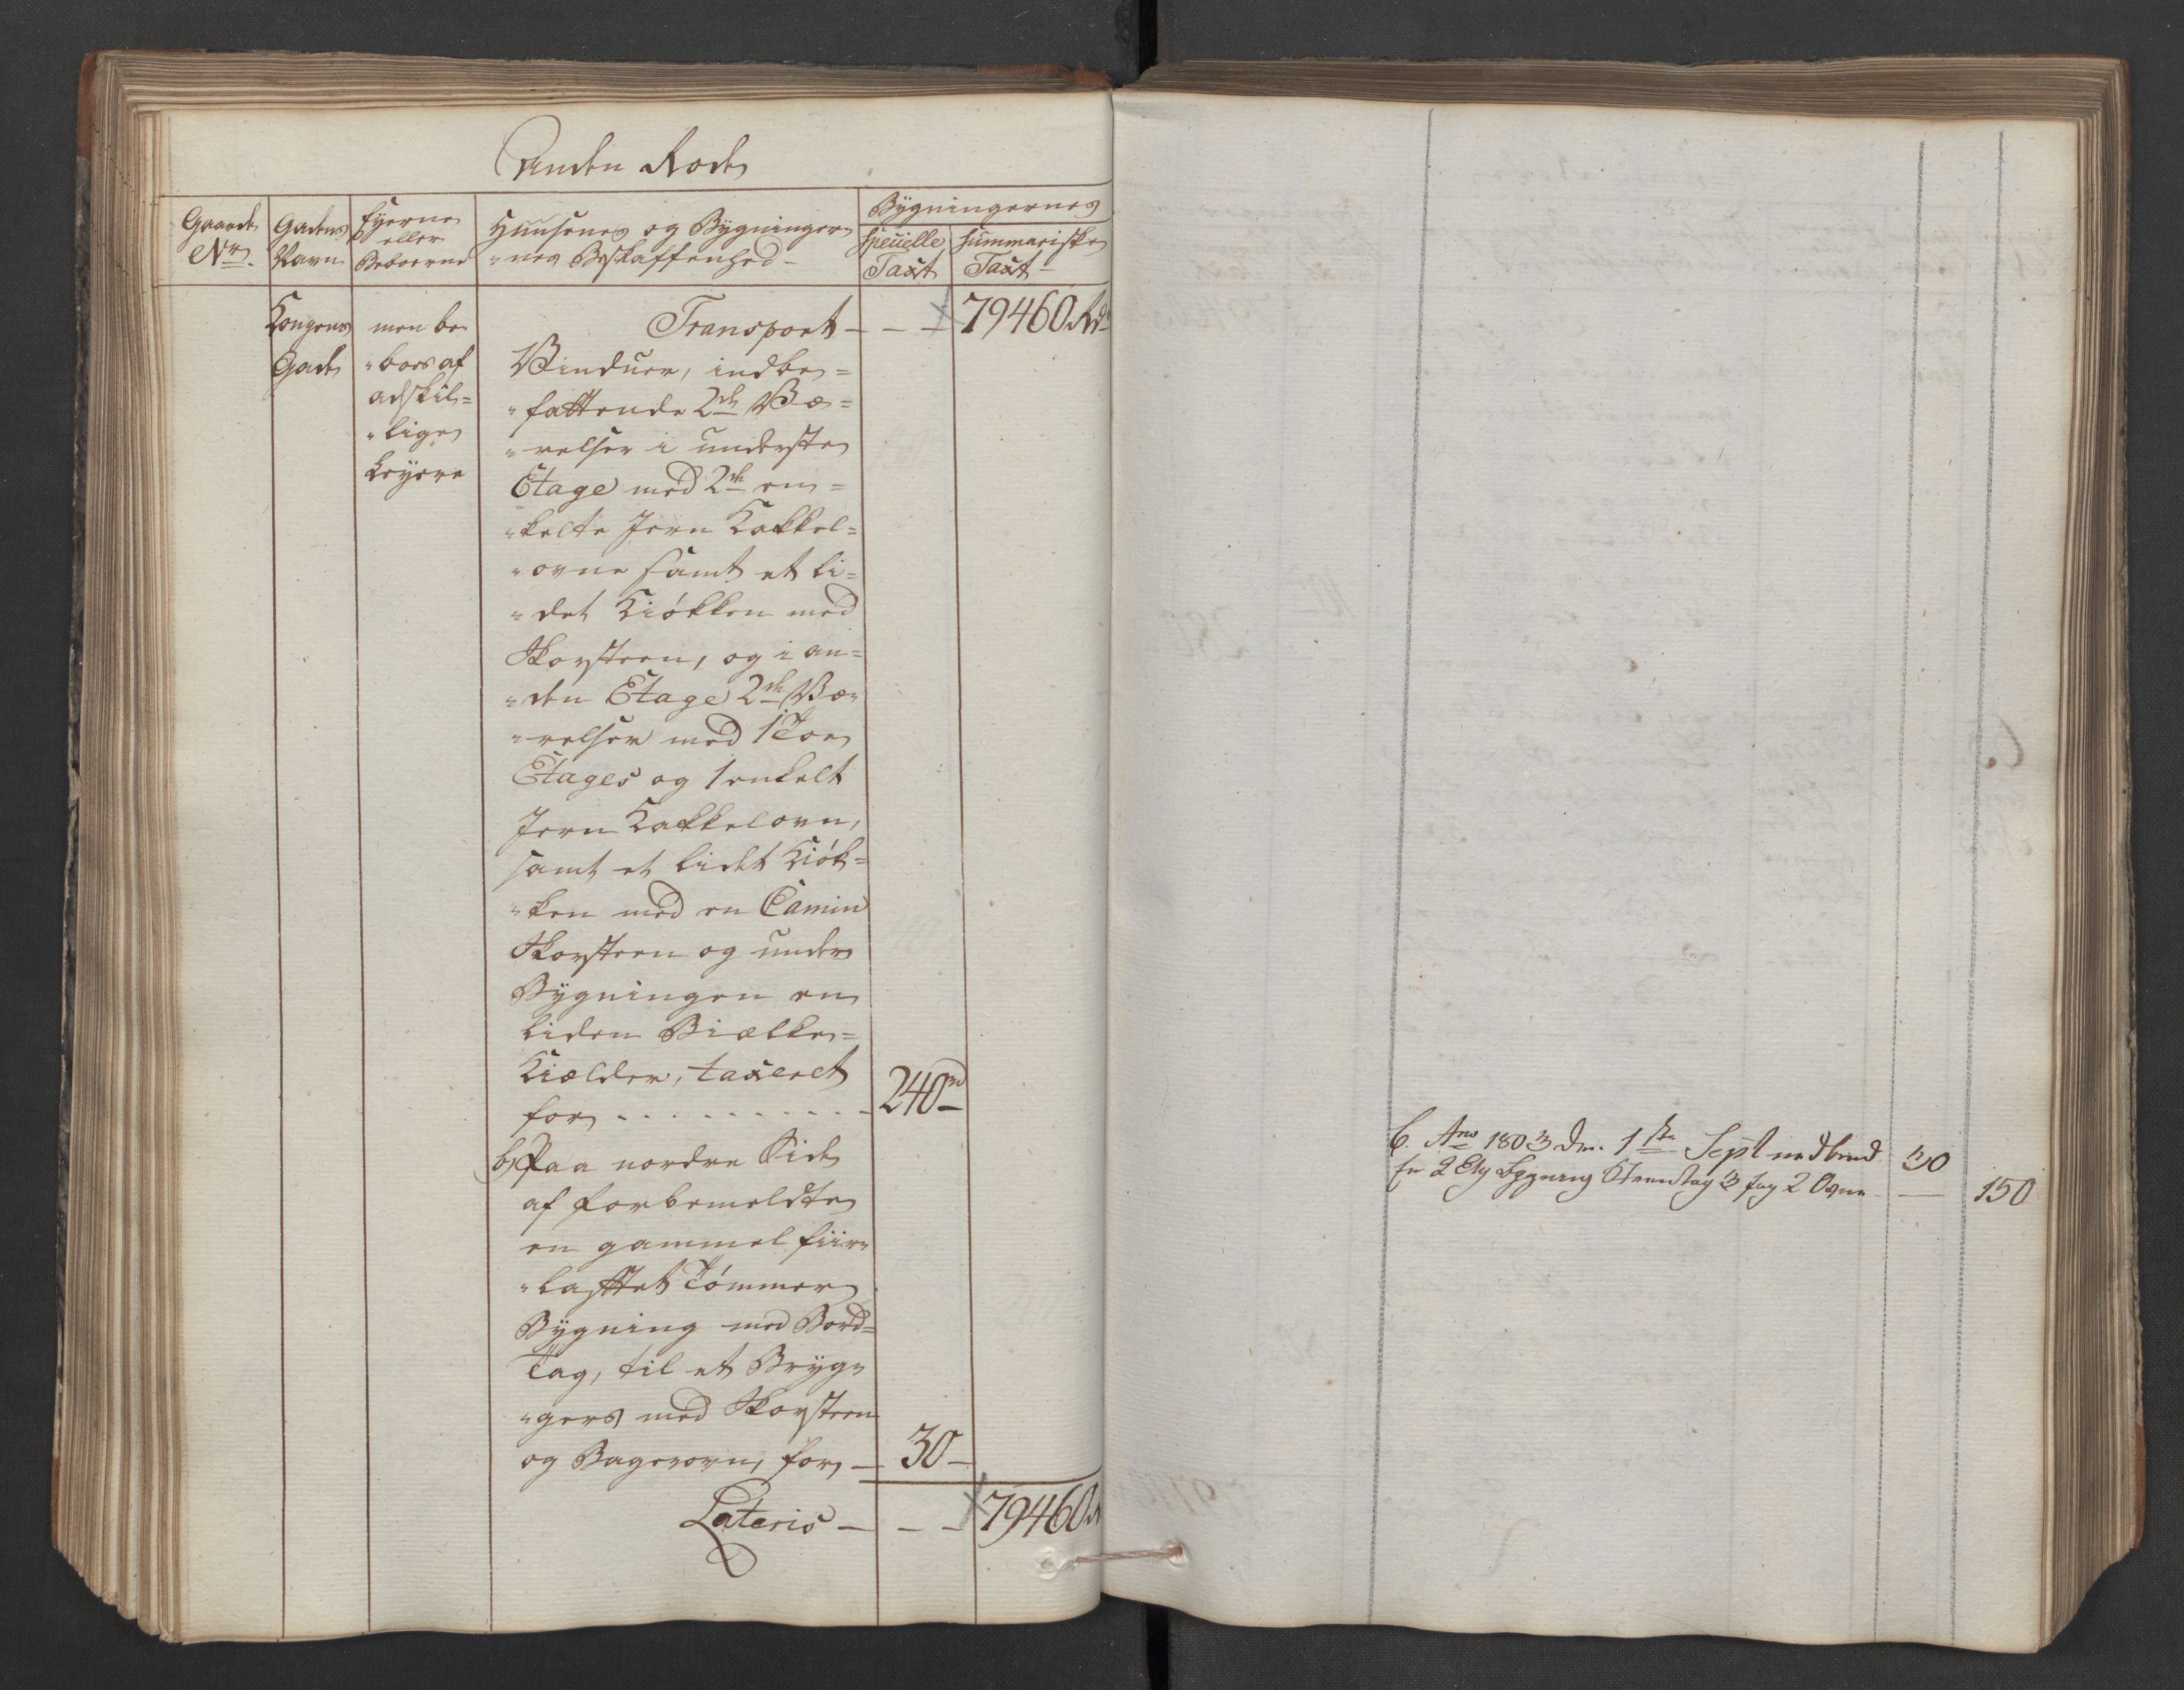 Anden Rode
Gaardens Nr.
Gadens Navn
Eyerne eller Beboerne
Huusenes og Bygninger-
"nes Beskaffenhed-
Bygningernes
specielle Taxt
summariske Taxt-
Kongens
Gade
men be-
"boes af
adskil=
"lige
Leyere
Transport - - - 79460 Rdr
Vinduer, indbe=
"fattende 2de Væ=
"relser i underste
Etage med 2de en=
"kelte Jern Kakkel=
"ovne samt et li=
"det Kiökken med
Skorsteen, og i an=
"den Etage 2de Væ-
"relser med 1 Toe
Etages og 1 enkelt
Jern Kakkelovn,
samt et lidet Kiök=
"ken med en Camin
Skorsteen og under
Bygningen en
liden Biælke=
Kiælder, taxeret
for - - - - - - - - - 240 rd
b) Paa nordre Side
af forbemeldte
en gammel fiir-
"lafftet Tömmer
Bygning med Bord=
Tag, til et Bryg-
"gers med Skorsteen
og Bagerovn, for - 30 -
Lateris - - - 79460 R
6. Ano 1803 den 1ste Sept 30
2 Etg 3 fag 2 Ovne - 150